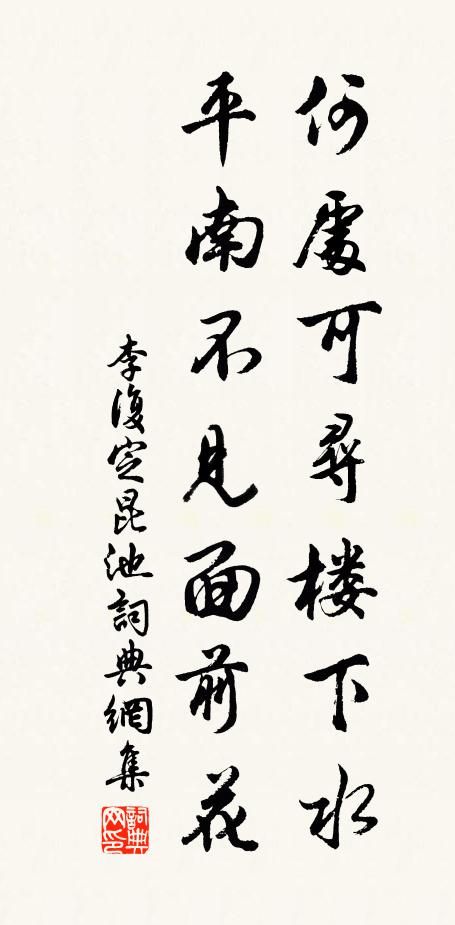 何處可尋楼下水
平南不见面前花
李復定昆池詞典網集
詞典网印